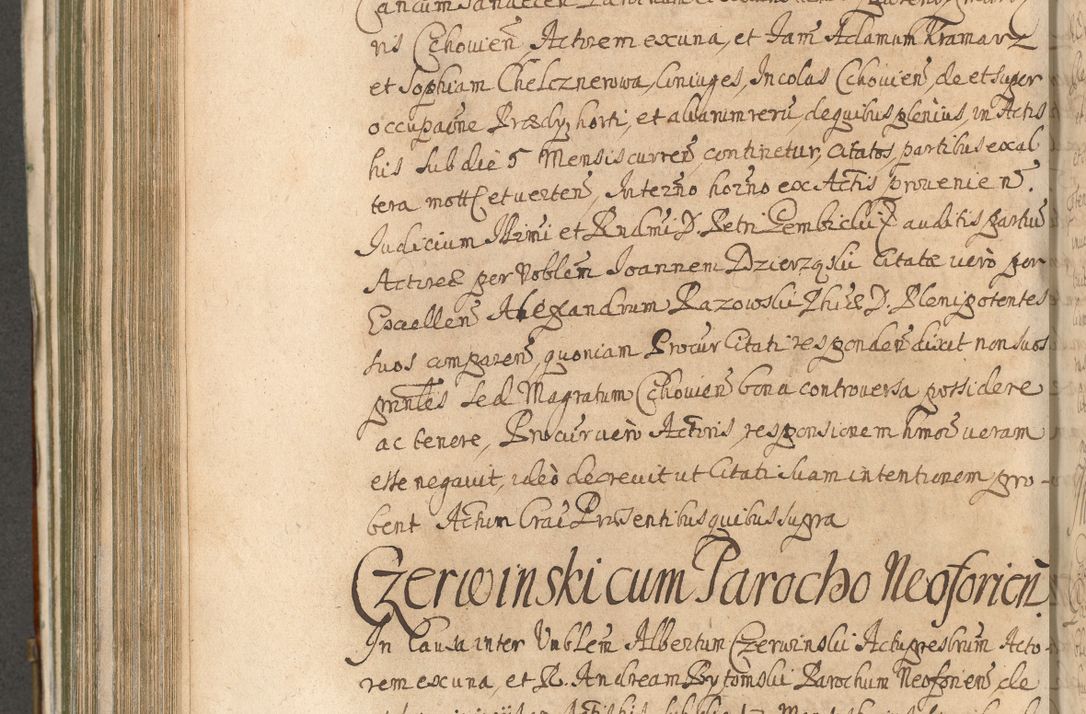 ris Cchovień, Actorem ex una, et Jam Adamum Kramarz
et Sophiam Chelcznerowa, Coniuges, Incolas Cchovień, de et super
occupaõne Prædÿ, horti, et aliarum rerũ, de quibus plenius, in Actis
his sub die 5 Mensis curreñ continetur, Citatos, partibus ex al
tera mott et verteñ, Interño horño ex Actis provenieñ.
Judicium Illrmi et Rndmi D. Petri Gembicki auditis partiũ
Actoreæ per Noblem Joannem Dzierzqski Citatæ verò per
Excelleñ Alexandrum Razowski Phiæ D. Plenipotentes
suos compareñ, quoniam Procur Citati respondeñ dixit non suos
prñtes sed Magratum Cchovień bona controversa possidere
ac tenere, Procur verò Actoris, responsionem hmoi veram
esse negavit, ideò decrevit ut Citati suam intentionem pro-
bent Actum Crac Præsentibus quibus supra
Czerwinski cum Parocho Neoforień
In Causa inter Nnblem Albertum Czerwinski Actu presbrum Acto-
rem ex una, et R. Andream Bytomski Parochum Neoforień, de